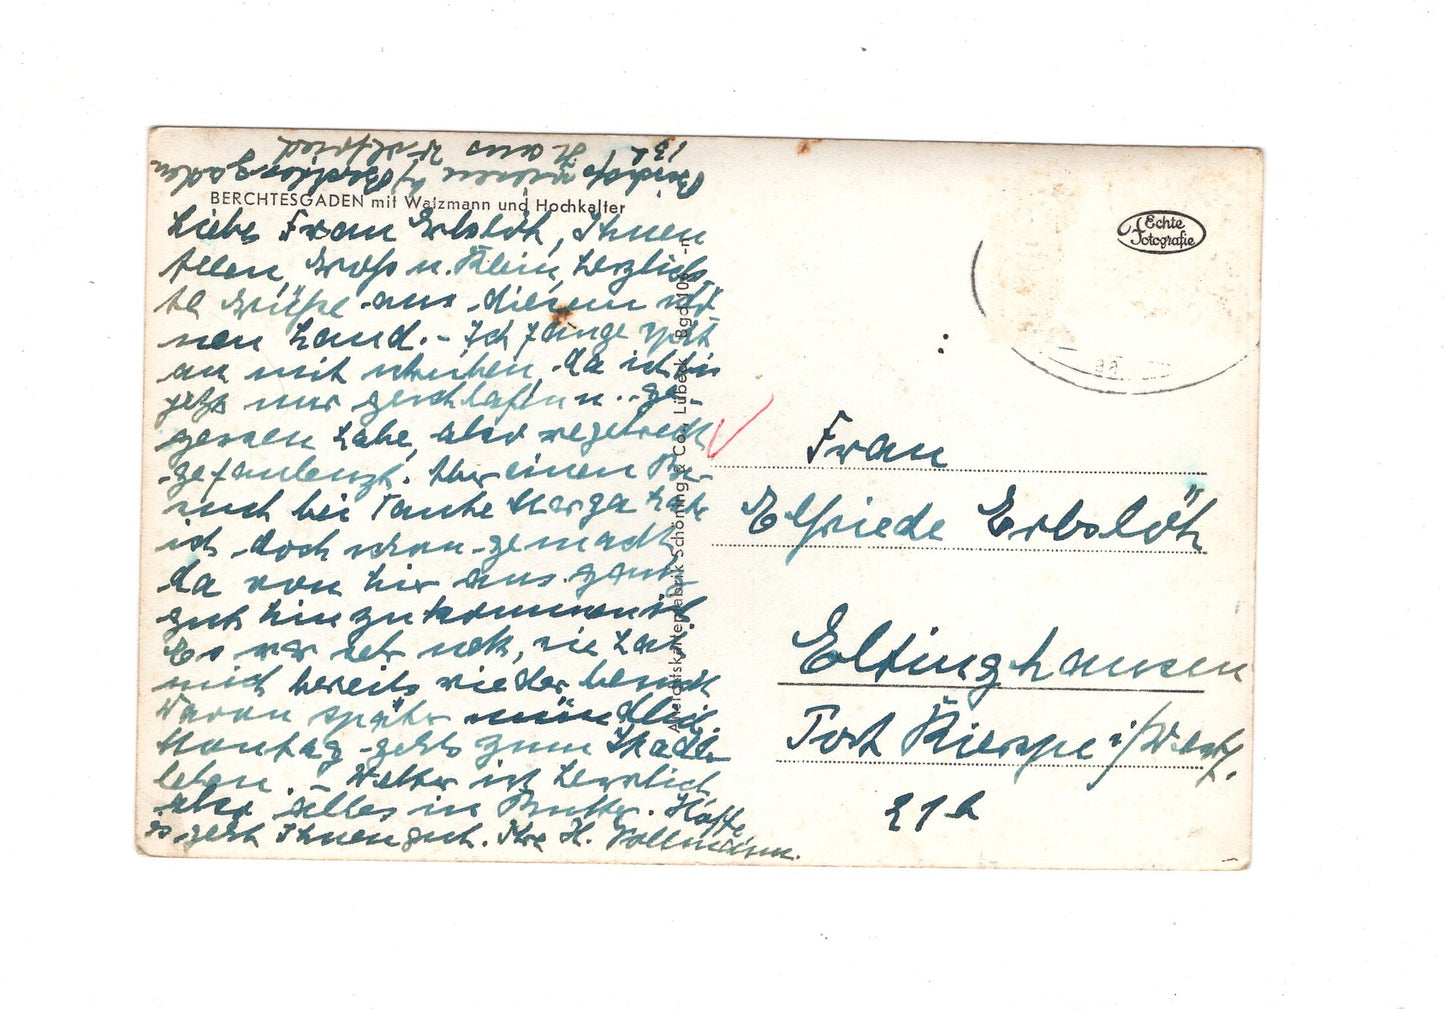 13 b
Bischofswiesen b/ Berchtesgaden
Haus
BERCHTESGADEN mit Watzmann und Hochkalter
Liebe Frau Erbslöh, Ihnen
Allen, Gross u. Klein, herzlich-
ste Grüße aus diesem schö-
nen Land. - Ich fange spät
an mit schreiben, da ich bis
jetzt nur geschlafen u. ge-
gessen habe, also regelrecht
gefaulenzt. Aber einen Be-
such bei Tante Marga habe
ich doch schon gemacht,
da von hier aus ganz
gut hinzukommen ist.
Es war sehr nett, sie hat
mich bereits wieder besucht
Davon später mündlich.
Montag gehts zum
leben. - Wetter ist herrlich
also alles in Butter. Hoffe
es geht Ihnen gut. Ihre H. Vollmann.
Ansichtskartenfabrik Schöning & Co., Lübeck Bgd 108 -n
Echte
Fotografie
Frau
Elfriede Erbslöh
Eltinghausen
Post Kierspe i/Westf.
21b